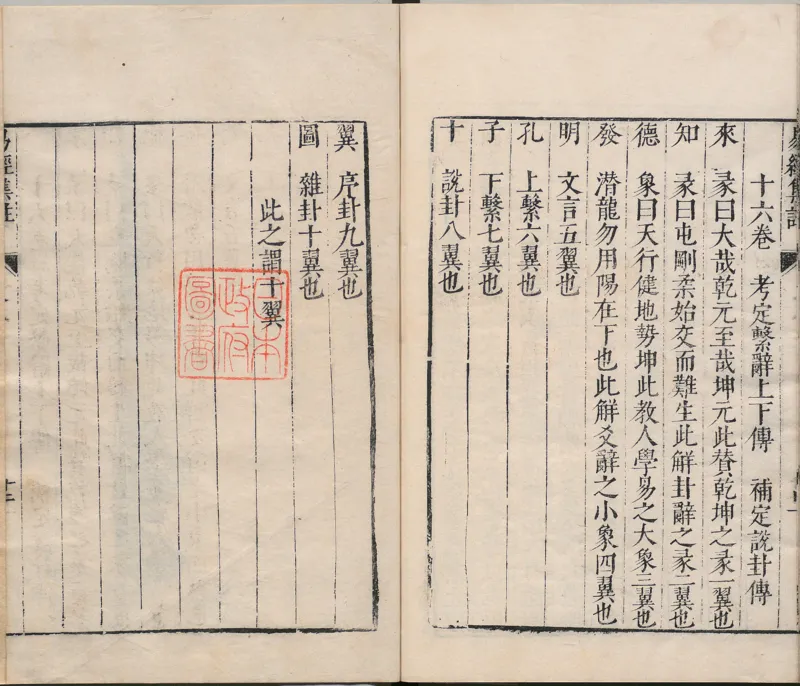 十六卷 考定繫辭上下傳 補定說卦傳
來 彖曰大哉乾元至哉坤元此贊乾坤之彖一翼也
知 彖曰屯剛柔始交而難生此解卦辭之彖二翼也
德 象曰天行健地勢坤此教人學易之大象三翼也
發 潛龍勿用陽在下也此解爻辭之小象四翼也
明 文言五翼也
孔 上繫六翼也
子 下繫七翼也
十 說卦八翼也
翼 序卦九翼也
圖 雜卦十翼也
此之謂十翼
日本
政府
圖書
易經集註
十二